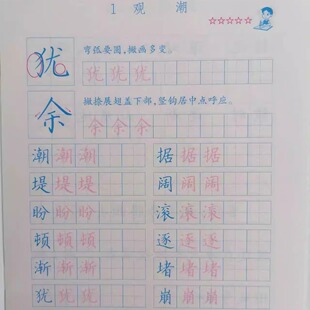 1 观 潮
☆☆☆☆☆
犹 弯弧要圆,撇画多变。
犹 犹 犹
余 撇捺展翅盖下部,竖钩居中点呼应。
余 余 余
潮 潮 潮 据 据 据
堤 堤 堤 阔 阔 阔
盼 盼 盼 滚 滚 滚
顿 顿 顿 逐 逐 逐
渐 渐 渐 堵 堵 堵
犹 犹 犹 崩 崩 崩